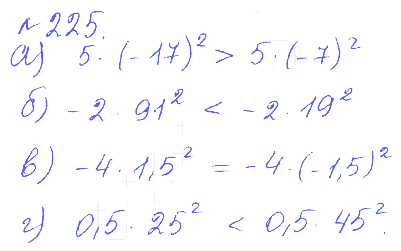 № 225.
а) 5 · (-17)² > 5 · (-7)²
б) -2 · 91² < -2 · 19²
в) -4 · 1,5² = -4 · (-1,5)²
г) 0,5 · 25² < 0,5 · 45².